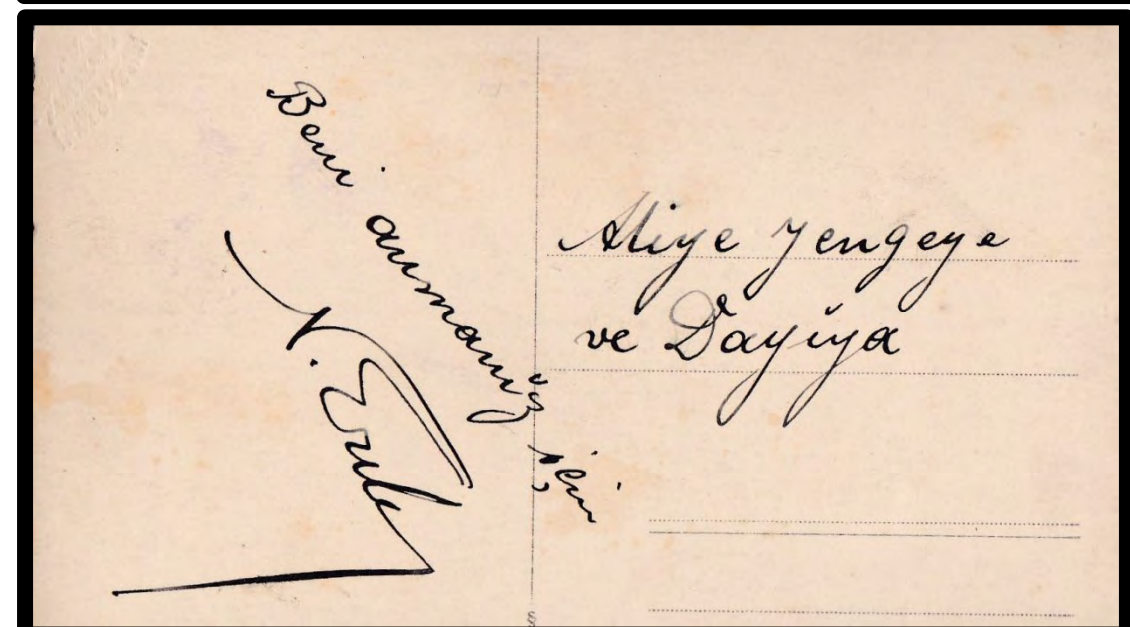 Beni anmanız için
N.
Aliye Yengeye
ve Dayıya